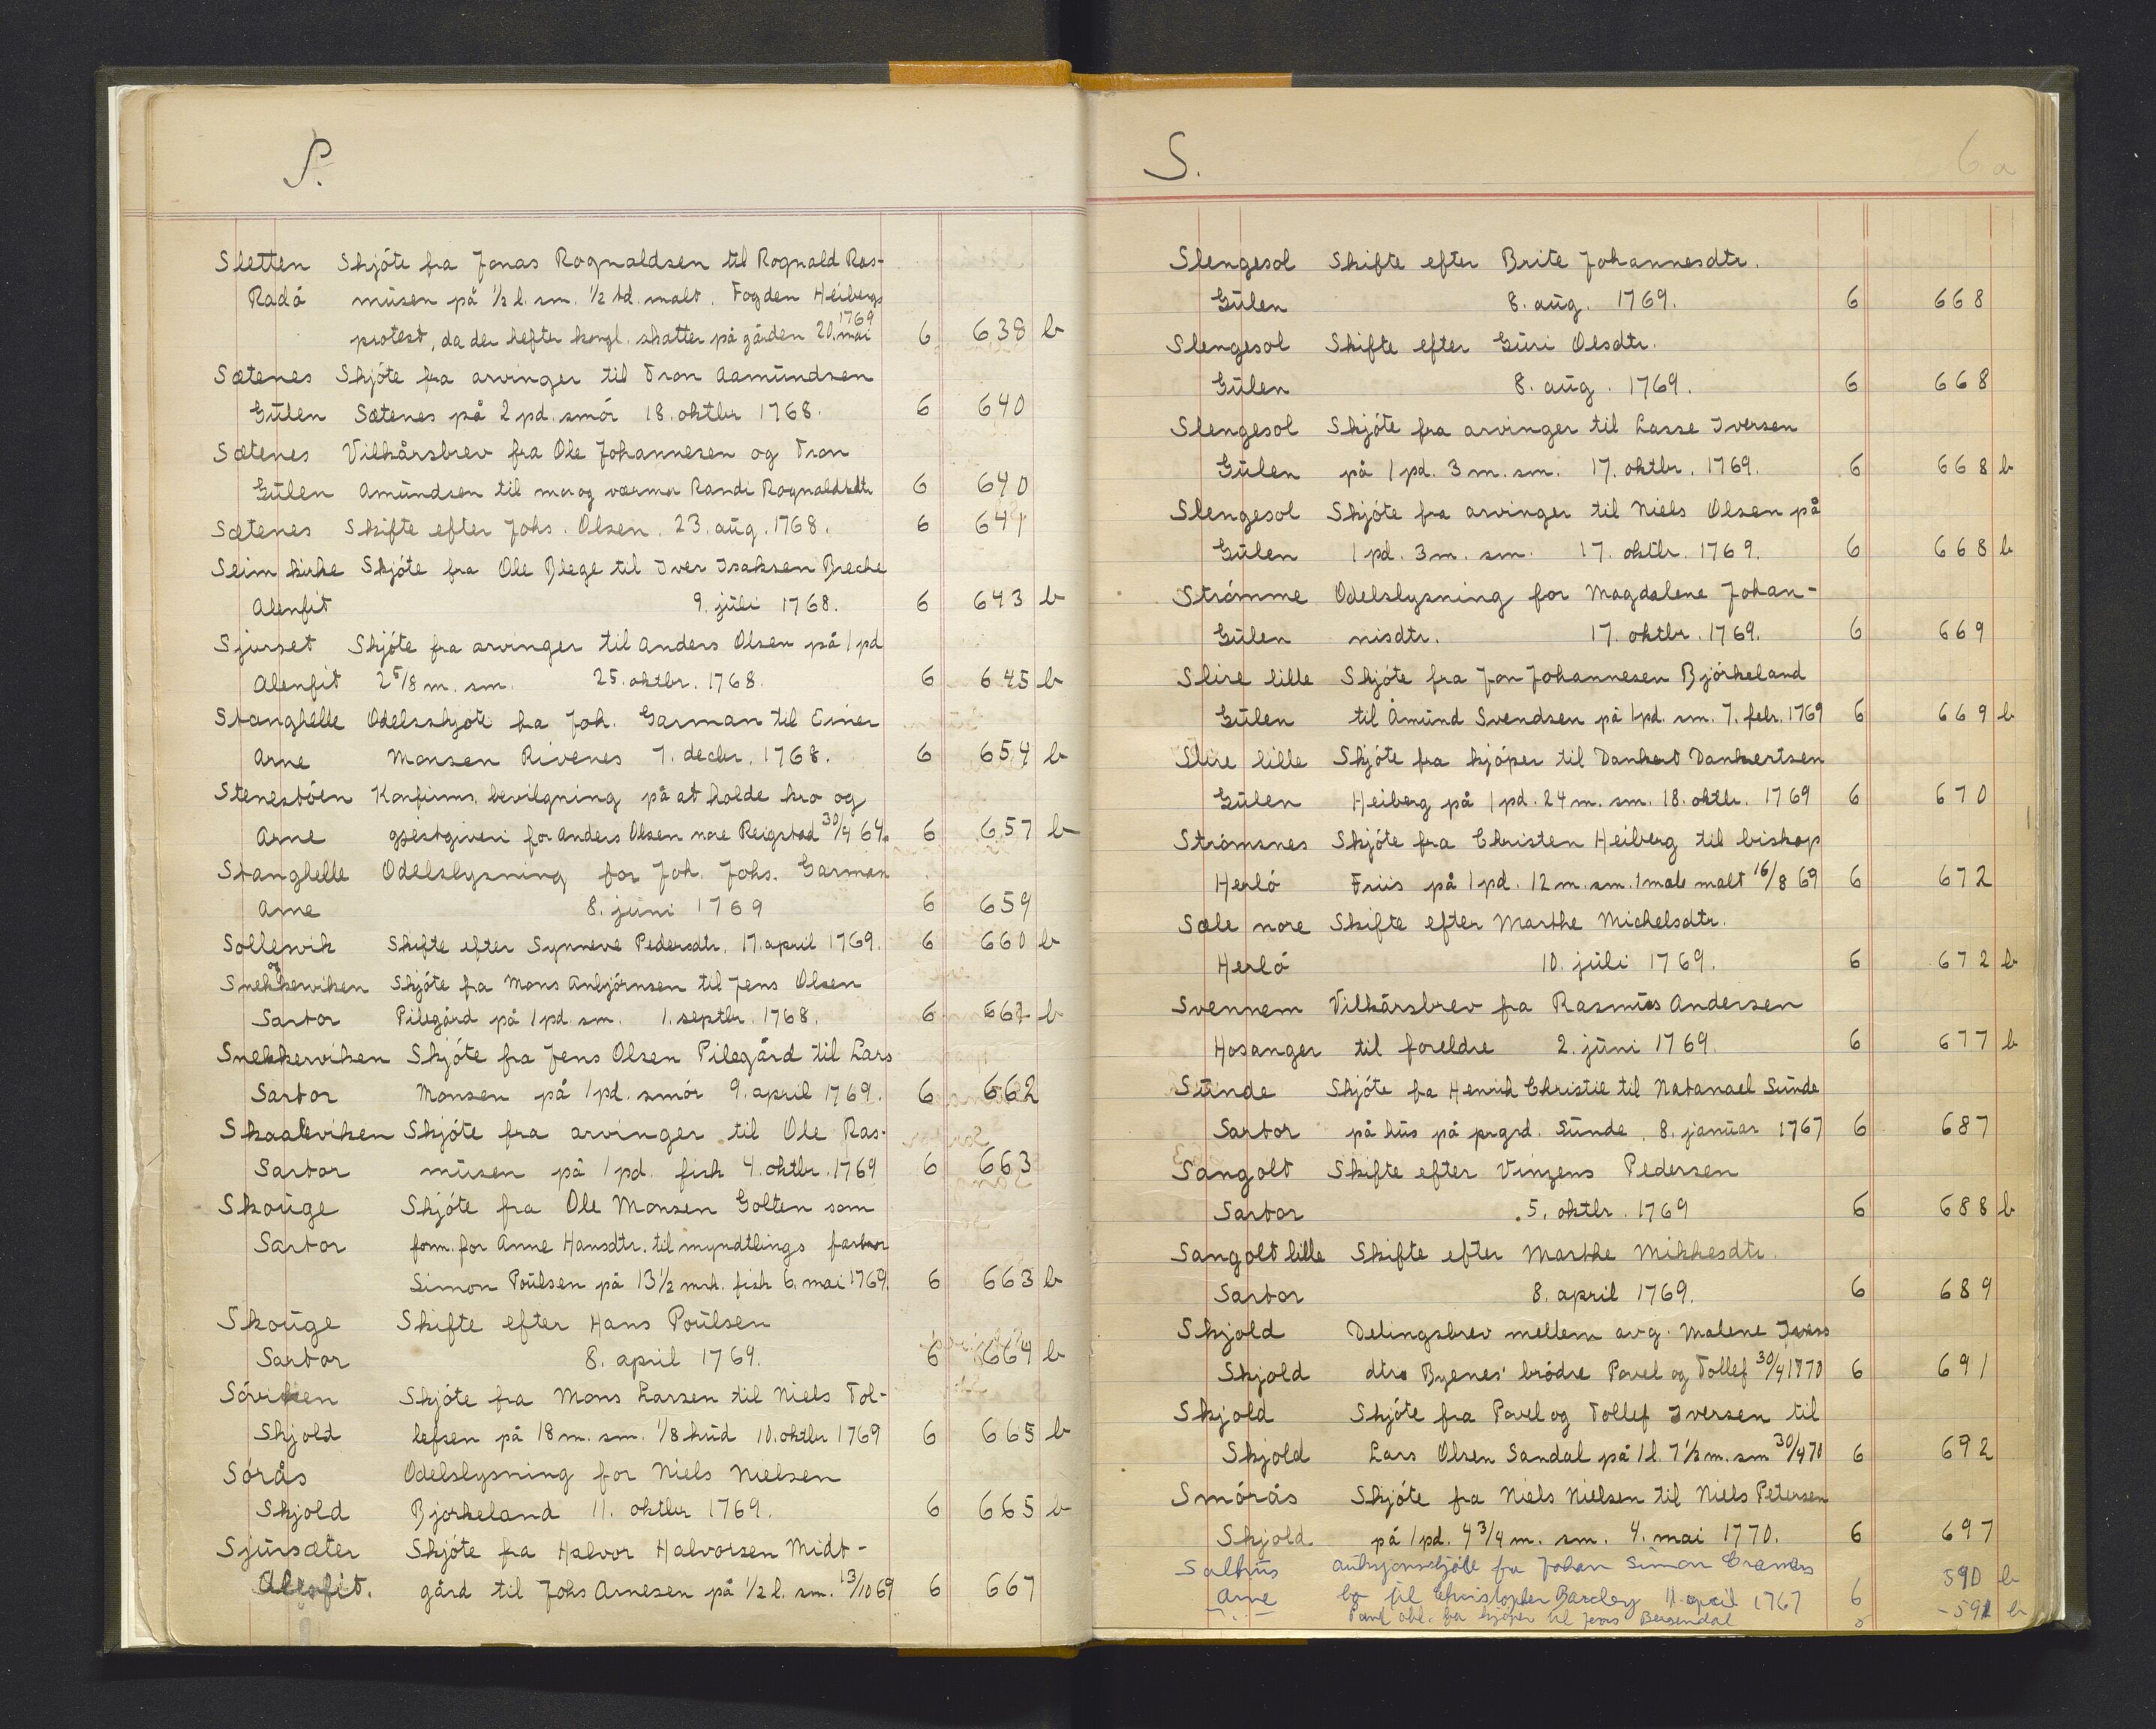 S.
Sletten Skjóte fra Jonas Rognaldsen til Rognald Ras-
Radó müsen på 1/2 l. sm. 1/2 td. malt. Fogden Heibergs
protest, da der hefter kongl. skatter på gården 20. mai 1769 6 638 b
Sætenes Skjóte fra arvinger til Tron Aamündsen
Gülen Sætenes på 2 pd. smór 18. oktbr 1768. 6 640
Sætenes Vilkårsbrev fra Ole Johannesen og Tron
Gülen Amündsen til mor og værmor Randi Rognaldsdtr 6 640
Sætenes Skifte efter Johs. Olsen. 23. aüg. 1768. 6 641
Seim kirke Skjóte fra Ole Blege til Iver Isaksen Breche
Alenfit 9. jüli 1768. 6 643 b
Sjurset Skjóte fra arvinger til Anders Olsen på 1 pd
Alenfit 2 5/8 m. sm. 25. oktbr. 1768. 6 645 b
Stanghelle Odelsskjóte fra Joh. Garman til Einer
Arne Monsen Rivenes 7. decbr. 1768. 6 654 b
Stenestóen Konfirms. bevilgning på at holde kro og
Arne gjestgiveri for Anders Olsen nore Reigstad 30/4 64. 6 657 b
Stanghelle Odelslysning for Joh. Johs. Garman
Arne 8. jüni 1769 6 659
Sollesvik Skifte efter Synneve Pedersdtr. 17. april 1769. 6 660 b
Snekkerviken Skjóte fra Mons Anbjórnsen til Jens Olsen
Sartor Pilegård på 1 pd sm. 1. septbr. 1768. 6 661 b
Snekkerviken Skjóte fra Jens Olsen Pilegård til Lars
Sartor Monsen på 1 pd. smór 9. april 1769. 6 662
Skaaleviken Skjóte fra arvinger til Ole Ras-
Sartor müsen på 1 pd. fisk 4. oktbr. 1769 6 663
Skoüge Skjóte fra Ole Monsen Golten som
Sartor form. for Anne Hansdtr. til myndtlings farbror
Simon Poülsen på 13 1/2 mrk. fisk 6. mai 1769. 6 663 b
Skoüge Skifte efter Hans Poülsen
Sartor 8. april 1769. 6 664 b
Sóviken Skjóte fra Mons Larsen til Niels Tol-
Skjold lefsen på 18 m. sm. 1/8 hüd 10. oktbr 1769 6 665 b
Sórås Odelslysning for Niels Nielsen
Skjold Bjorkeland 11. oktbr 1769. 6 665 b
Sjürsæter Skjóte fra Halvor Halvorsen Midt-
Alenfit. gård til Johs Arnesen på 1/2 l. sm. 13/10 69 6 667
S. 6 a
Slengesol Skifte efter Brite Johannesdtr.
Gülen 8. aüg. 1769. 6 668
Slengesol Skifte efter Güri Olsdtr.
Gülen 8. aüg. 1769. 6 668
Slengesol Skjóte fra arvinger til Lasse Iversen
Gülen på 1 pd. 3 m. sm. 17. oktbr. 1769. 6 668 b
Slengesol Skjóte fra arvinger til Niels Olsen på
Gülen 1 pd. 3 m. sm. 17. oktbr. 1769. 6 668 b
Strómme Odelslysning for Magdalene Johan-
Gülen nisdtr. 17. oktbr. 1769. 6 669
Slire lille Skjóte fra Jon Johannesen Bjórkeland
Gülen til Åmünd Svendsen på 1 pd. sm. 7. febr. 1769 6 669 b
Slire lille Skjóte fra kjóper til Dankert Dankertsen
Gülen Heiberg på 1 pd. 24 m. sm. 18. oktbr. 1769 6 670
Strómsnes Skjóte fra Christen Heiberg til biskop
Herló Friis på 1 pd. 12 m. sm. 1 mæle malt 16/8 69 6 672
Sæle nore Skifte efter Marthe Michelsdtr.
Herló 10. jüli 1769. 6 672 b
Svennem Vilkårsbrev fra Rasmüs Andersen
Hosanger til foreldre 2. jüni 1769. 6 677 b
Sünde Skjóte fra Henrik Christie til Natanael Sünde
Sartor på hüs på prgrd. Sünde. 8. janüar 1767 6 687
Sangolt Skifte efter Vinzens Pedersen
Sartor 5. oktbr. 1769 6 688 b
Sangolt lille Skifte efter Marthe Mikkesdtr.
Sartor 8. april 1769. 6 689
Skjold Delingsbrev mellem avg. Malene Ivers
Skjold dtrs Byenes' bródre Povel og Tollef 30/4 1770 6 691
Skjold Skjóte fra Povel og Tollef Iversen til
Skjold Lars Olsen Sandal på 1 l. 7 1/2 m. sm 30/4 70 6 692
Smórås Skjóte fra Niels Nielsen til Niels Petersen
Skjold på 1 pd. 4 3/4 m. sm. 4. mai 1770. 6 697
Salhüs auksjonsskjóte fra Johan Simon Cramers 590 b
Arne bo til Christopher Barclay 11. april 1767 6
Pant obl. fra kjóper til Jens Bergendal - 591 b